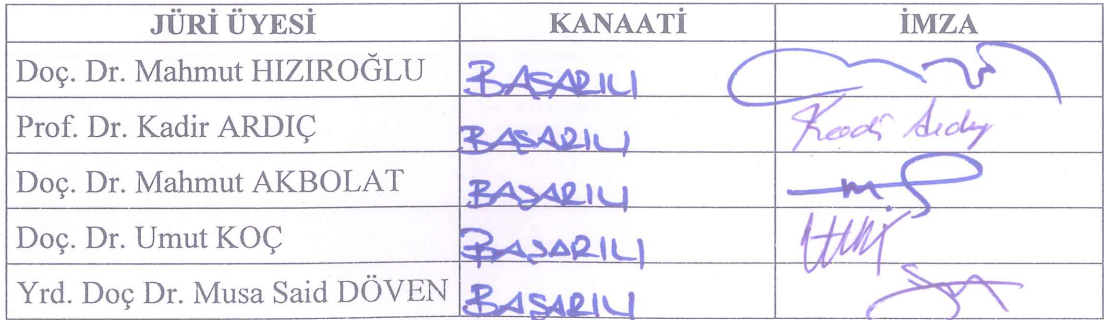 JÜRİ ÜYESİ KANAATİ İMZA
Doç. Dr. Mahmut HIZIROĞLU BAŞARILI
Prof. Dr. Kadir ARDIÇ BAŞARILI
Doç. Dr. Mahmut AKBOLAT BAŞARILI
Doç. Dr. Umut KOÇ BAŞARILI
Yrd. Doç Dr. Musa Said DÖVEN BAŞARILI